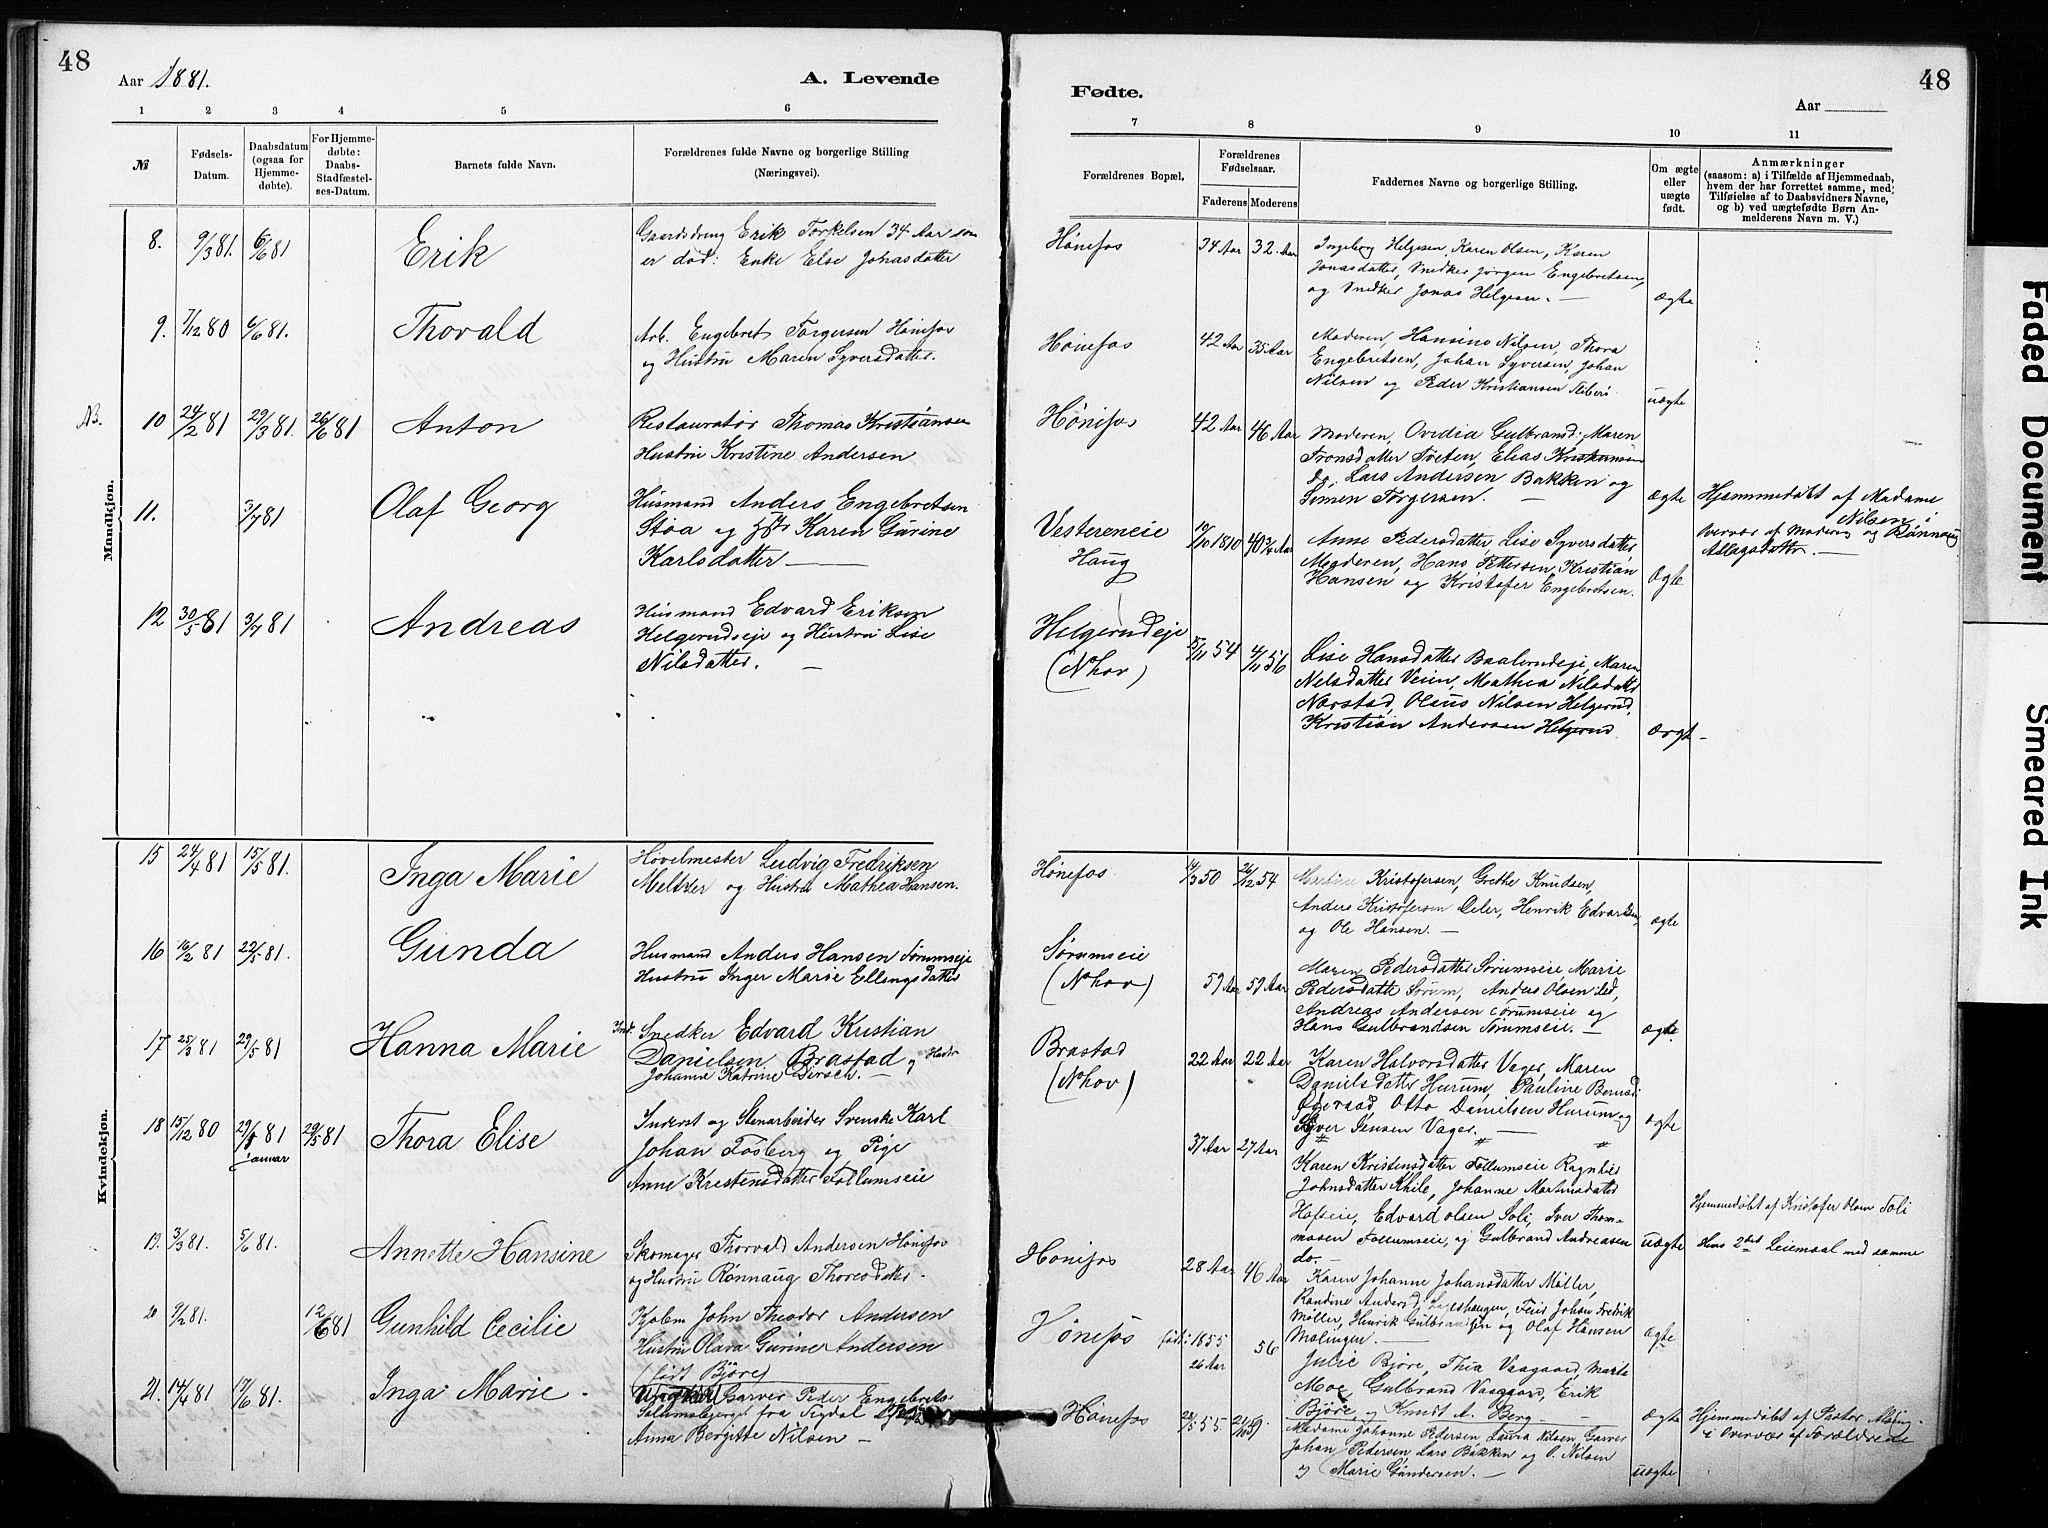 48
Aar 1881.
A. Levende
1 2 3 4 5 6
№
Fødsels-Datum.
Daabsdatum (ogsaa for Hjemme-døbte).
For Hjemme-døbte: Daabs-Stadfæstel-ses-Datum.
Barnets fulde Navn.
Forældrenes fulde Navne og borgerlige Stilling
(Næringsvei).
Mandkjøn.
8. 9/3 81. 6/6 81 Erik
Gaardsdreng Erik Torkelsen 34 Aar som
er død: Enke Else Jonasdatter
9. 7/12 80 6/6 81. Thorvald
Arb. Engebret Torgersen Hønefos
og Hustru Maren Syversdatter.
NB. 10 24/2 81 29/3 81. 26/6 81 Anton
Restauratør Thomas Kristiansen
Hustru Kristine Andersen
11. 3/7 81 Olaf Georg
Husmand Anders Engebretsen
Støa og Karen Gurine
Karlsdatter —
12 30/5 81 3/7 81 Andreas
Husmand Edvard Eriksen
Helgerudseje og Hustru Lise
Nilsdatter. —
Kvindekjøn.
15 24/4 81 15/5 81. Inga Marie
Høvelmester Ludvig Fredriksen
Meltzer og Hustru Mathea Hansen.
16 16/2 81 22/5 81. Gunda
Husmand Anders Hansen Sørumseje
Hustru Inger Marie Ellingsdatter
17 25/3 81 29/5 81 Hanna Marie
Inds. Snedker Edvard Kristian
Danielsen Brastad og Hustr
Johanne Katrine Dirsch. —
18 15/12 80 29/1 81 januar 29/5 81 Thora Elise
Inderst og Stenarbeider Svenske Karl
Johan Fosberg og Pige
Anne Kristensdatter Follumseie
19. 3/3 81. 5/6 81. Annette Hansine
Skomager Thorvald Andersen Hønefos
og Hustru Rønnaug Thoresdatter.
20 9/2 81. 12/6 81 Gunhild Cecilie
Kjøbm John Theodor Andersen
Hustru Olava Gurine Andersen
(født Bjøre)
21. 14/4 81 17/6 81. Inga Marie.
Garver Peder Engebrets-
fra Sigdal
Anna Bergitte Nilsen —
48
Fødte.
Aar
7 8 9 10 11
Forældrenes Bopæl.
Forældrenes Fødselsaar.
Faderens Moderens
Faddernes Navne og borgerlige Stilling.
Om ægte eller uægte født.
Anmærkninger
(saasom: a) i Tilfælde af Hjemmedaab,
hvem der har forrettet samme, med
Tilføielse af to Daabsvidners Navne,
og b) ved uægtefødte Børn An-
melderens Navn m. V.)
Hønefos 34 Aar 32 Aar
Ingeborg Helgesen, Karen Olsen, Karen
Jonasdatter, Snedker Jørgen Engebretsen,
og Snedker Jonas Helgesen. — ægte
Hønefos 42 Aar 35 Aar
Moderen, Hansine Nilsen, Thora
Engebretsen, Johan Syversen, Johan
Nilsen og Peder Kristiansen
uægte
Hønefos 42 Aar 46 Aar
Moderen, Ovidia Gulbransd: Maren
Tronsdatter Tveten, Elias Kristiansen
do, Lars Andersen Bakken og
Simen Torgersen. — ægte
Hjemmedøbt af Madame
Nilsen i
Overvær af Moderen og Rønnaug
Aslagsdatter. —
Vestereneie
Haug
10/10 1840 40 3/4 Aar
Anne Pedersdatter, Lise Syversdatter,
Moderen, Hans Pettersen, Kristian
Hansen og Kristofer Engebretsen. Ægte
Helgerudeje
(Nhov)
5/11 54 4/11 56
Lise Hansdatter Baalerudeje, Maren
Nilsdatter Veien, Mathea Nilsdatter
Norstad, Olaus Nilsen Helgerud,
Kristian Andersen Helgerud ægte —
Hønefos 14/3 50 24/12 54
Martine Kristofersen, Grethe Knudsen,
Anders Kristofersen Oeler, Henrik Edvardsen,
og Ole Hansen. — ægte
Sørumseie
(Nhov)
59 Aar 59 Aar
Maren Pedersdatter Sørumseie, Marie
Pedersdatte Sørum, Anders Olsen ibd,
Andreas Andersen Sørumseie og
Hans Gulbrandsen Sørumseie. — ægte.
Brastad
(Nhov)
22 Aar 22 Aar
Karen Halvorsdatter Vager, Maren
Danielsdatter Hurum, Pauline Bernsd:
Otto Danielsen Hurum og
Syver Jensen Vager. — ægte
37 Aar 27 Aar
Karen Kristensdatter Follumseie Ragnhild
Johnsdatter Khile, Johanne Martinusdatter
Hofseie, Edvard Olsen Soli, Iver Thom-
mesen Follumseie, og Gulbrand Andreasen
do. — uægte
Hjemmedøbt af Kristofer Olsen Soli
Hans 2det Leiemaal med samme
Hønefos 28 Aar 46 Aar
Karen Johanne Johansdatter Møller,
Randine Andersd. Lageshaugen, Feier Johan Fredrik
Møller, Henrik Gulbrandsen og Olaf Hansen
Malingen. — ægte
Hønefos født: 1855 26 Aar 56
Julie Bjøre, Thia Vaagaard, Marte
Moe, Gulbrand Vaagaard, Erik
Bjøre, og Knudt A. Berg. — ægte
Hjemmedøbt af Pastor
i Overvær af Forældrene
Hønefos 28/5 55.
Madame Johanne Pedersen Laura Nilsen Garver
Johan Pedersen, Lars Bakken og O. Nilsen
og Marie Gundersen. — uægte
Faded Document
Smeared Ink